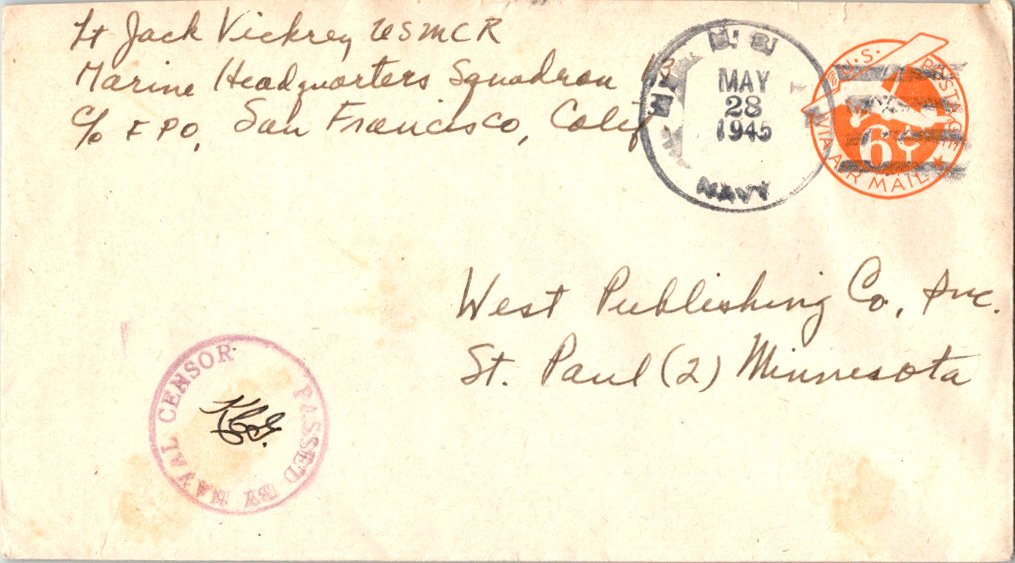 Lt Jack Vickrey USMCR
Marine Headquarters Squadron
c/o FPO, San Francisco, Calif
U.S.
MAY
28
1945
NAVY
U.S. POSTAGE
6¢
VIA AIR MAIL
West Publishing Co, Inc.
St. Paul (2) Minnesota
PASSED BY NAVAL CENSOR